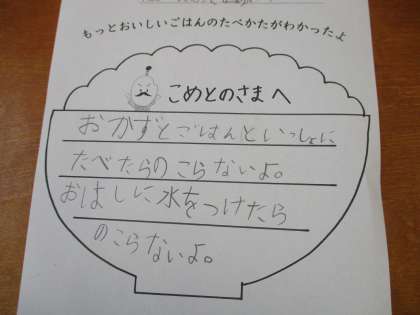 もっとおいしいごはんのたべかたがわかったよ
こめとのさまへ
おかずとごはんといっしょに
たべたらのこらないよ。
おはしに水をつけたら
のこらないよ。